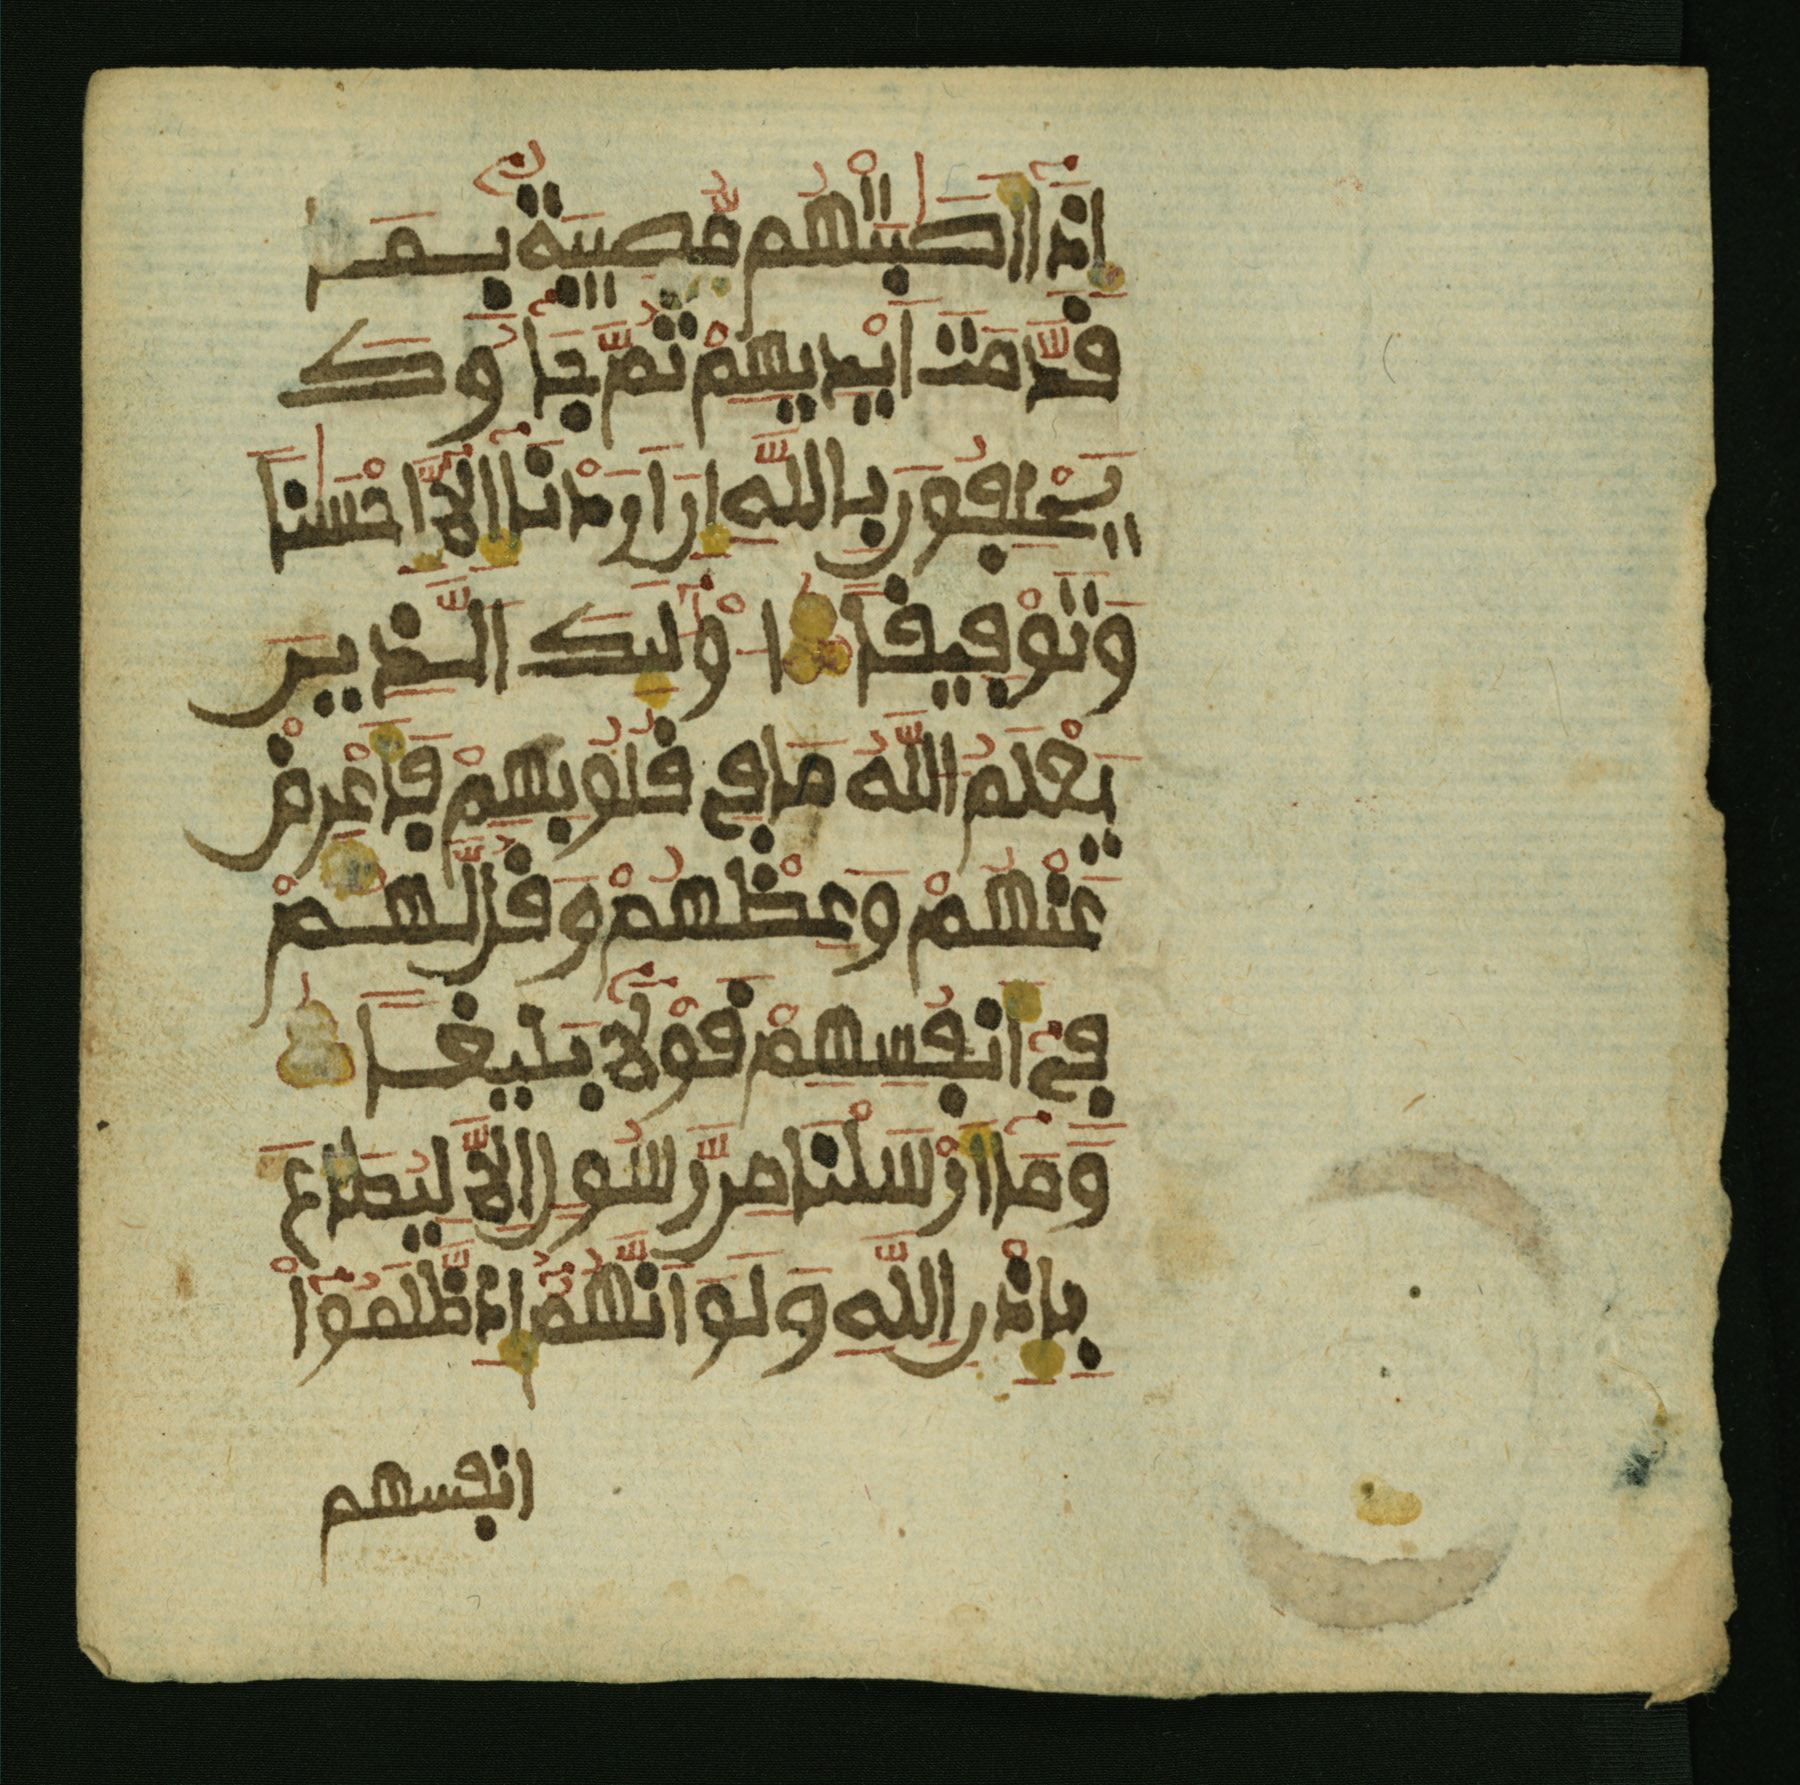 إِذَا أَصَٰبَتْهُم مُّصِيبَةٌ بِمَا
قَدَّمَتَ اَيْدِيهِمْ ثُمَّ جَآءُوكَ
يَحْلِفُونَ بِاللَّهِ إِنَ اَرَدْنَا إِلَّا إِحْسَٰناً
وَتَوْفِيقاً اوْلَٰئِكَ الَّذِينَ
يَعْلَمُ اللَّهُ مَا فِي قُلُوبِهِمْ فَأَعْرِضْ
عَنْهُمْ وَعِظْهُمْ وَقُل لَّهُمْ
فِي أَنفُسِهِمْ قَوْلًا بَلِيغاً
وَمَا أَرْسَلْنَا مِن رَّسُولٍ إِلَّا لِيُطَاعَ
بِإِذْنِ اللَّهِ وَلَوَ اَنَّهُمُ إِذ ظَّلَمُوا
انفسهم